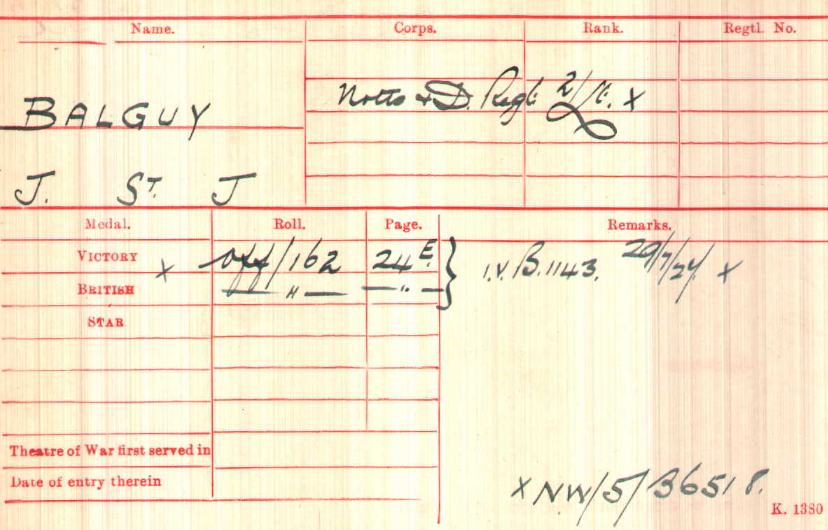 Name. Corps. Rank. Regtl. No.
BALGUY Notts & D. Regt 2/Lt. X
J. ST. J
Medal. Roll. Page. Remarks.
VICTORY X Off/162 24E. } I.V. B.1143. 29/7/24 X
BRITISH — " — — " —
STAR
Theatre of War first served in
Date of entry therein
X NW/5/36518.
K. 1380